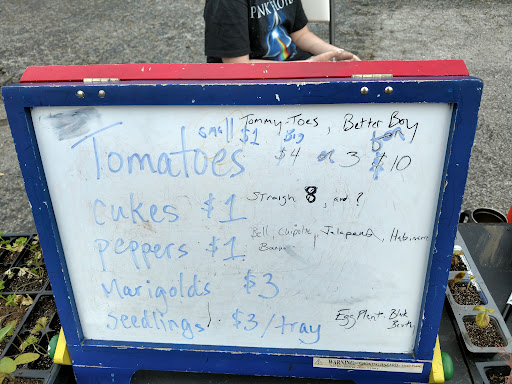 PINK FLOYD
Tommy Toes, Better Boy
small $1 Big
Tomatoes $4 or 3 for $10
cukes $1 Straigh 8, and ?
peppers $1 Bell, Chipotle, Jalapeno, Habinero
Banana
Marigolds $3
Seedlings $3/tray Eggplant Blak
Beauty
WARNING